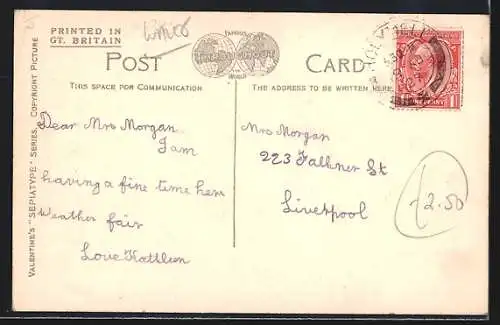 PRINTED IN
GT. BRITAIN
FAMOUS
THROUGHOUT
WORLD
POST CARD
THIS SPACE FOR COMMUNICATION
THE ADDRESS TO BE WRITTEN HERE
VALENTINE'S "SEPIATYPE" SERIES. COPYRIGHT PICTURE
Dear Mrs Morgan.
I am
having a fine time here
weather fair
Love Kathleen
Mrs Morgan.
223 Falkner St
Liverpool
ONE PENNY 1
2.50